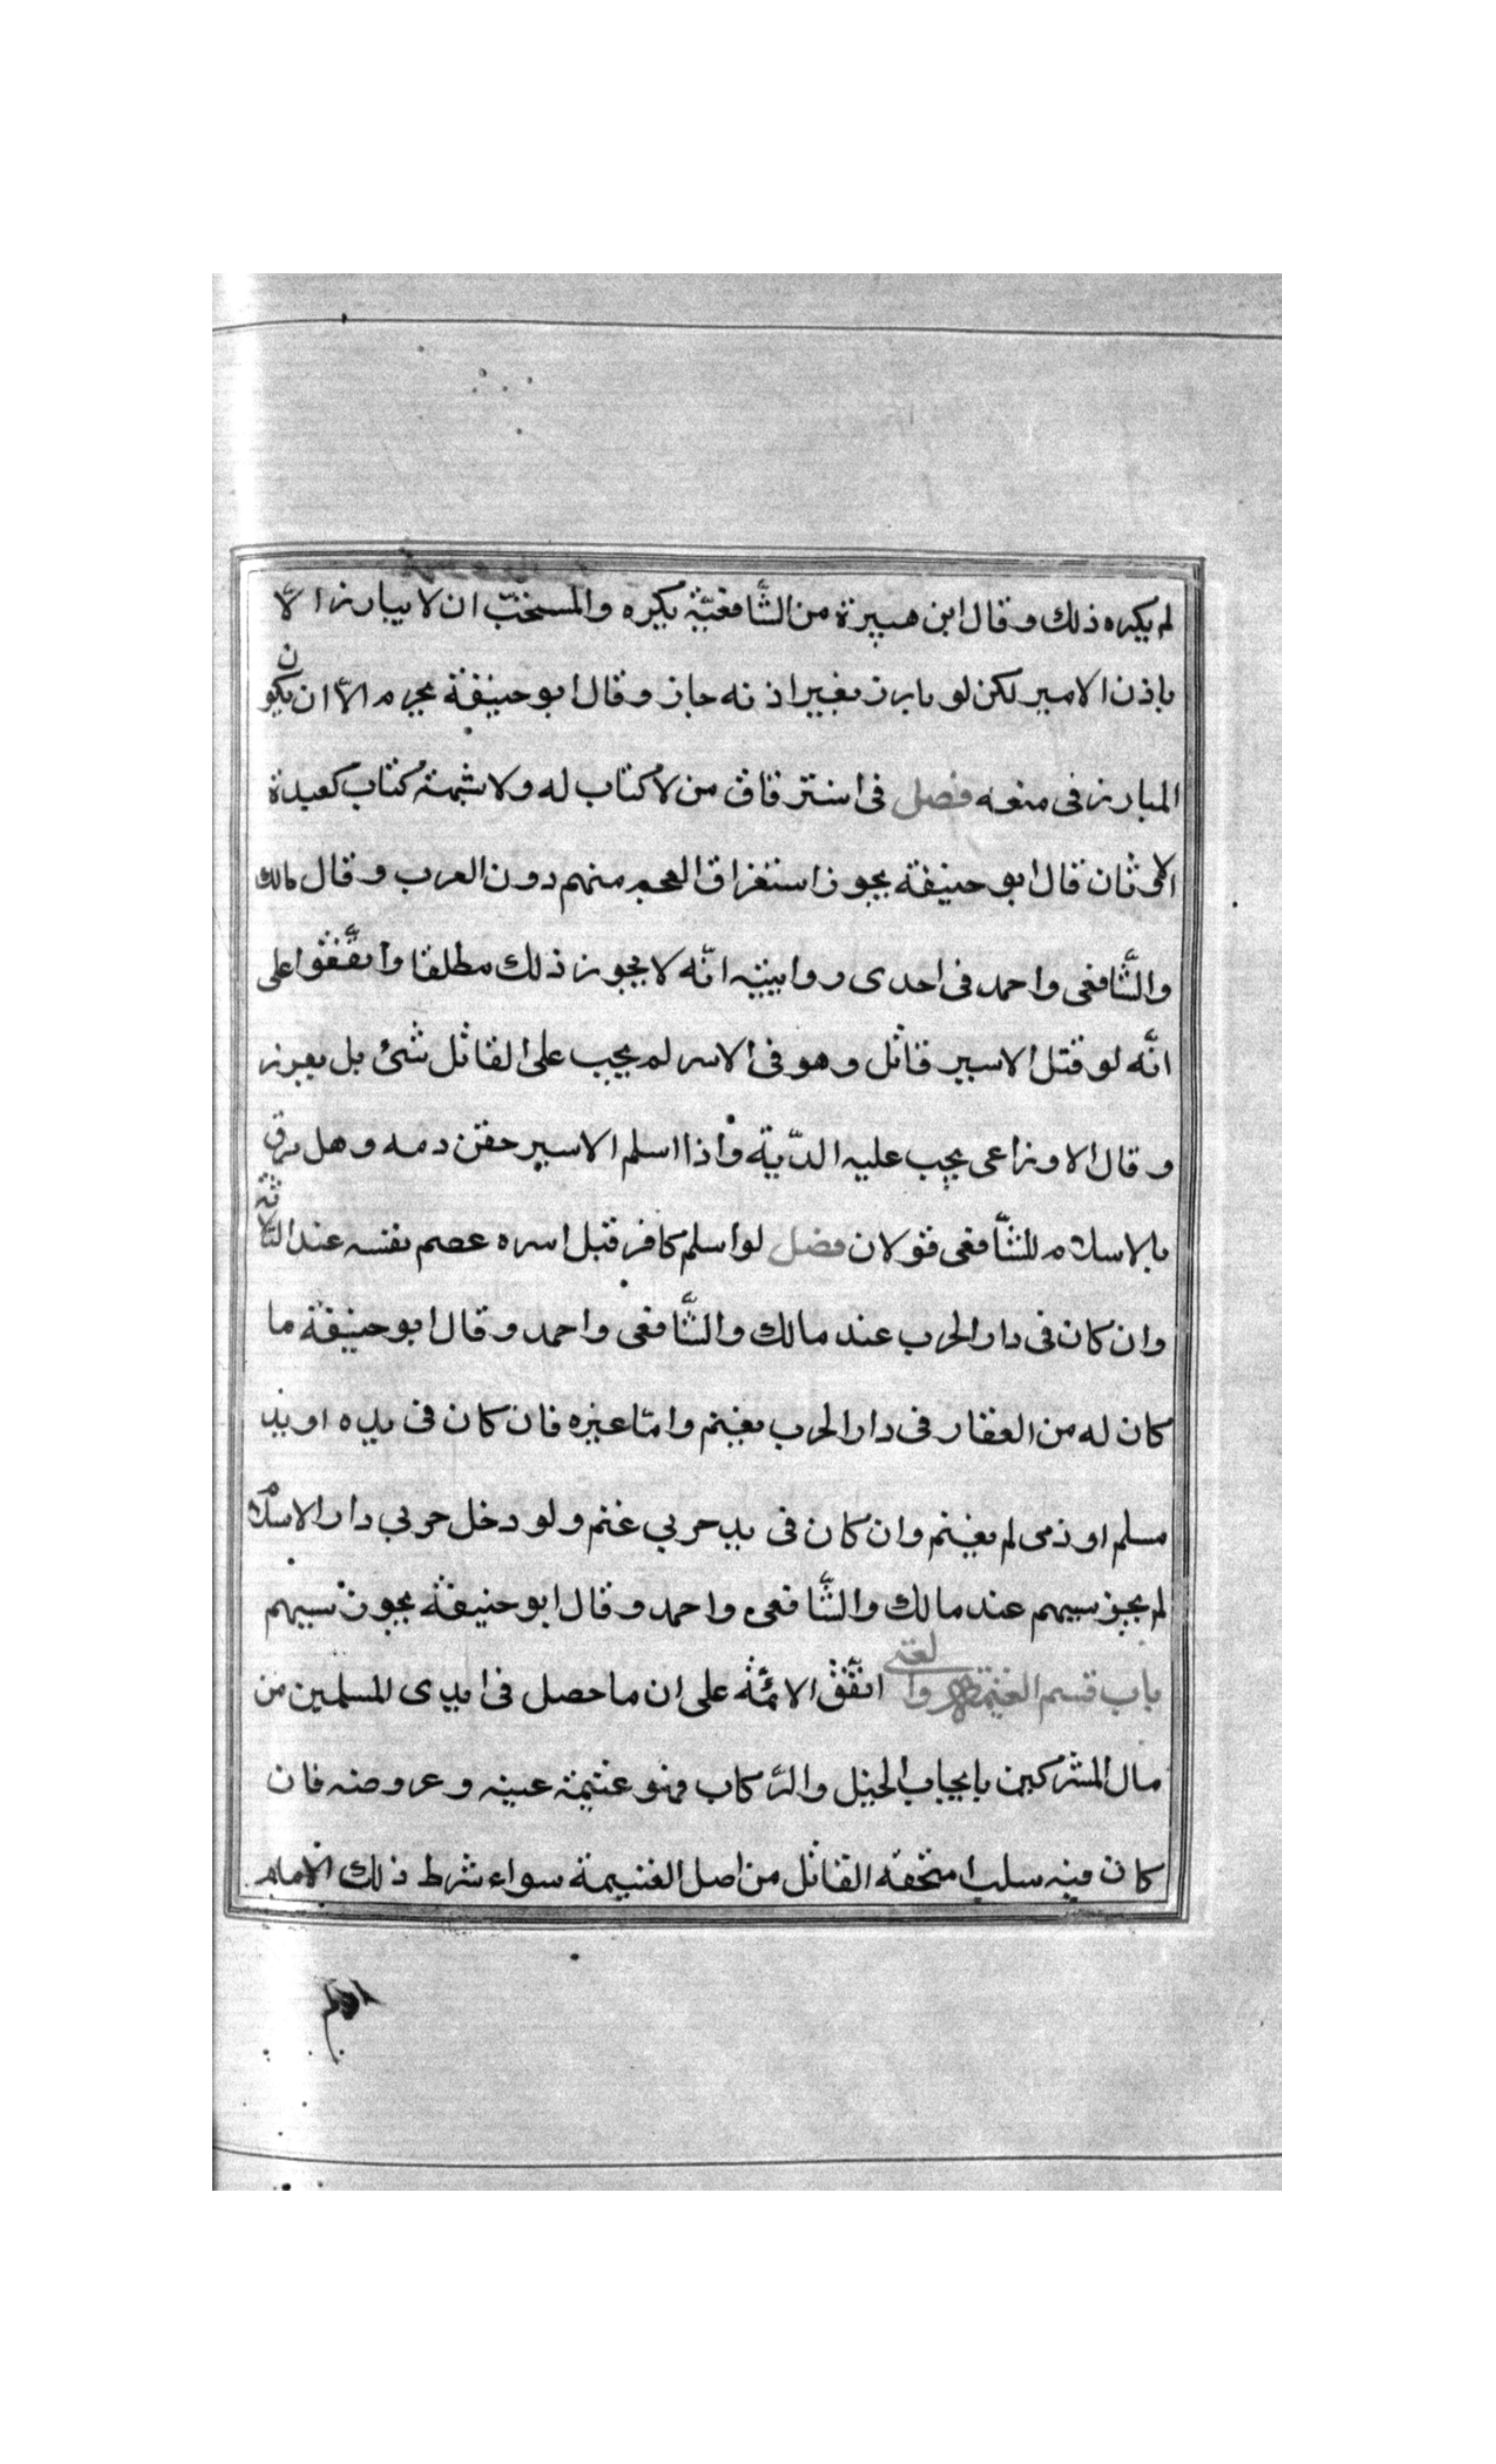 لم يكره ذلك وقال ابن هبيرة من الشّافعيّة يكره والمستحبّ ان لا يبارز الّا
باذن الامير لكن لو بارز بغير اذنه جاز وقال ابو حنيفة يحرم الّا ان يكون
المبارز فى منعه فصل فى استرقاق من لا كتاب له ولا شبهة كتاب كعبدة
الاوثان قال ابو حنيفة يجوز استغراق العجم منهم دون العرب وقال مالك
والشّافعى واحمد فى احدى روايتيه انّه لا يجوز ذلك مطلقا واتّفقوا على
انّه لو قتل الاسير قاتل وهو فى الاسر لم يجب على القاتل شئ بل يعزر
وقال الاوزاعى يجب عليه الدّية واذا اسلم الاسير حقن دمه وهل يرق
بالاسلام للشّافعى قولان فصل لو اسلم كافر قبل اسره عصم نفسه عند الثلاثة
وان كان فى دار الحرب عند مالك والشّافعى واحمد وقال ابو حنيفة ما
كان له من العقار فى دار الحرب يغنم وامّا غيره فان كان فى يده او يد
مسلم او ذمى لم يغنم وان كان فى يد حربي غنم ولو دخل حربي دار الاسلام
لم يجز سبيهم عند مالك والشّافعى واحمد وقال ابو حنيفة يجوز سبيهم
باب قسم الغنيمة والفئ اتّفق الائمّة على ان ما حصل فى ايدى المسلمين من
مال المشركين بايجاب الخيل والرّكاب فهو غنيمة عينه وعروضه فان
كان فيه سلب استحقه القاتل من اصل الغنيمة سواء شرط ذلك الامام